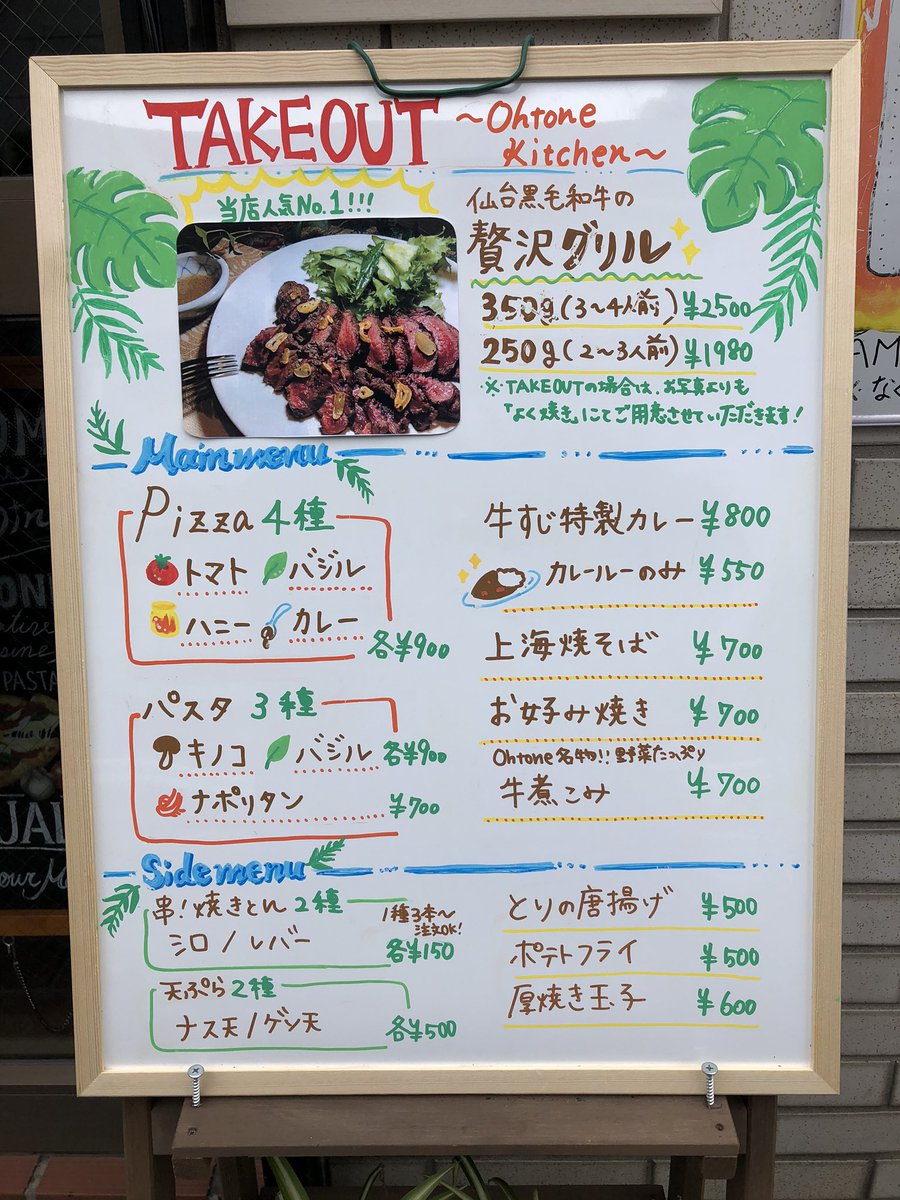 TAKEOUT
～Ohtone
Kitchen～
当店人気No.1!!!
仙台黒毛和牛の
贅沢グリル
350g(3～4人前)¥2500
250g(2～3人前)¥1980
※TAKEOUTの場合は、お写真よりも
「よく焼き」にてご用意させていただきます！
Main menu
Pizza 4種
トマト バジル
ハニー カレー
各¥900
パスタ 3種
キノコ バジル 各¥900
ナポリタン ¥700
牛すじ特製カレー ¥800
カレールーのみ ¥550
上海焼そば ¥700
お好み焼き ¥700
Ohtone名物!!野菜たっぷり
牛煮こみ ¥700
Side menu
串！焼きとん 2種
1種3本～
注文OK!
シロ/レバー 各¥150
天ぷら2種
ナス天/ゲソ天 各¥500
とりの唐揚げ ¥500
ポテトフライ ¥500
厚焼き玉子 ¥600
PASTA